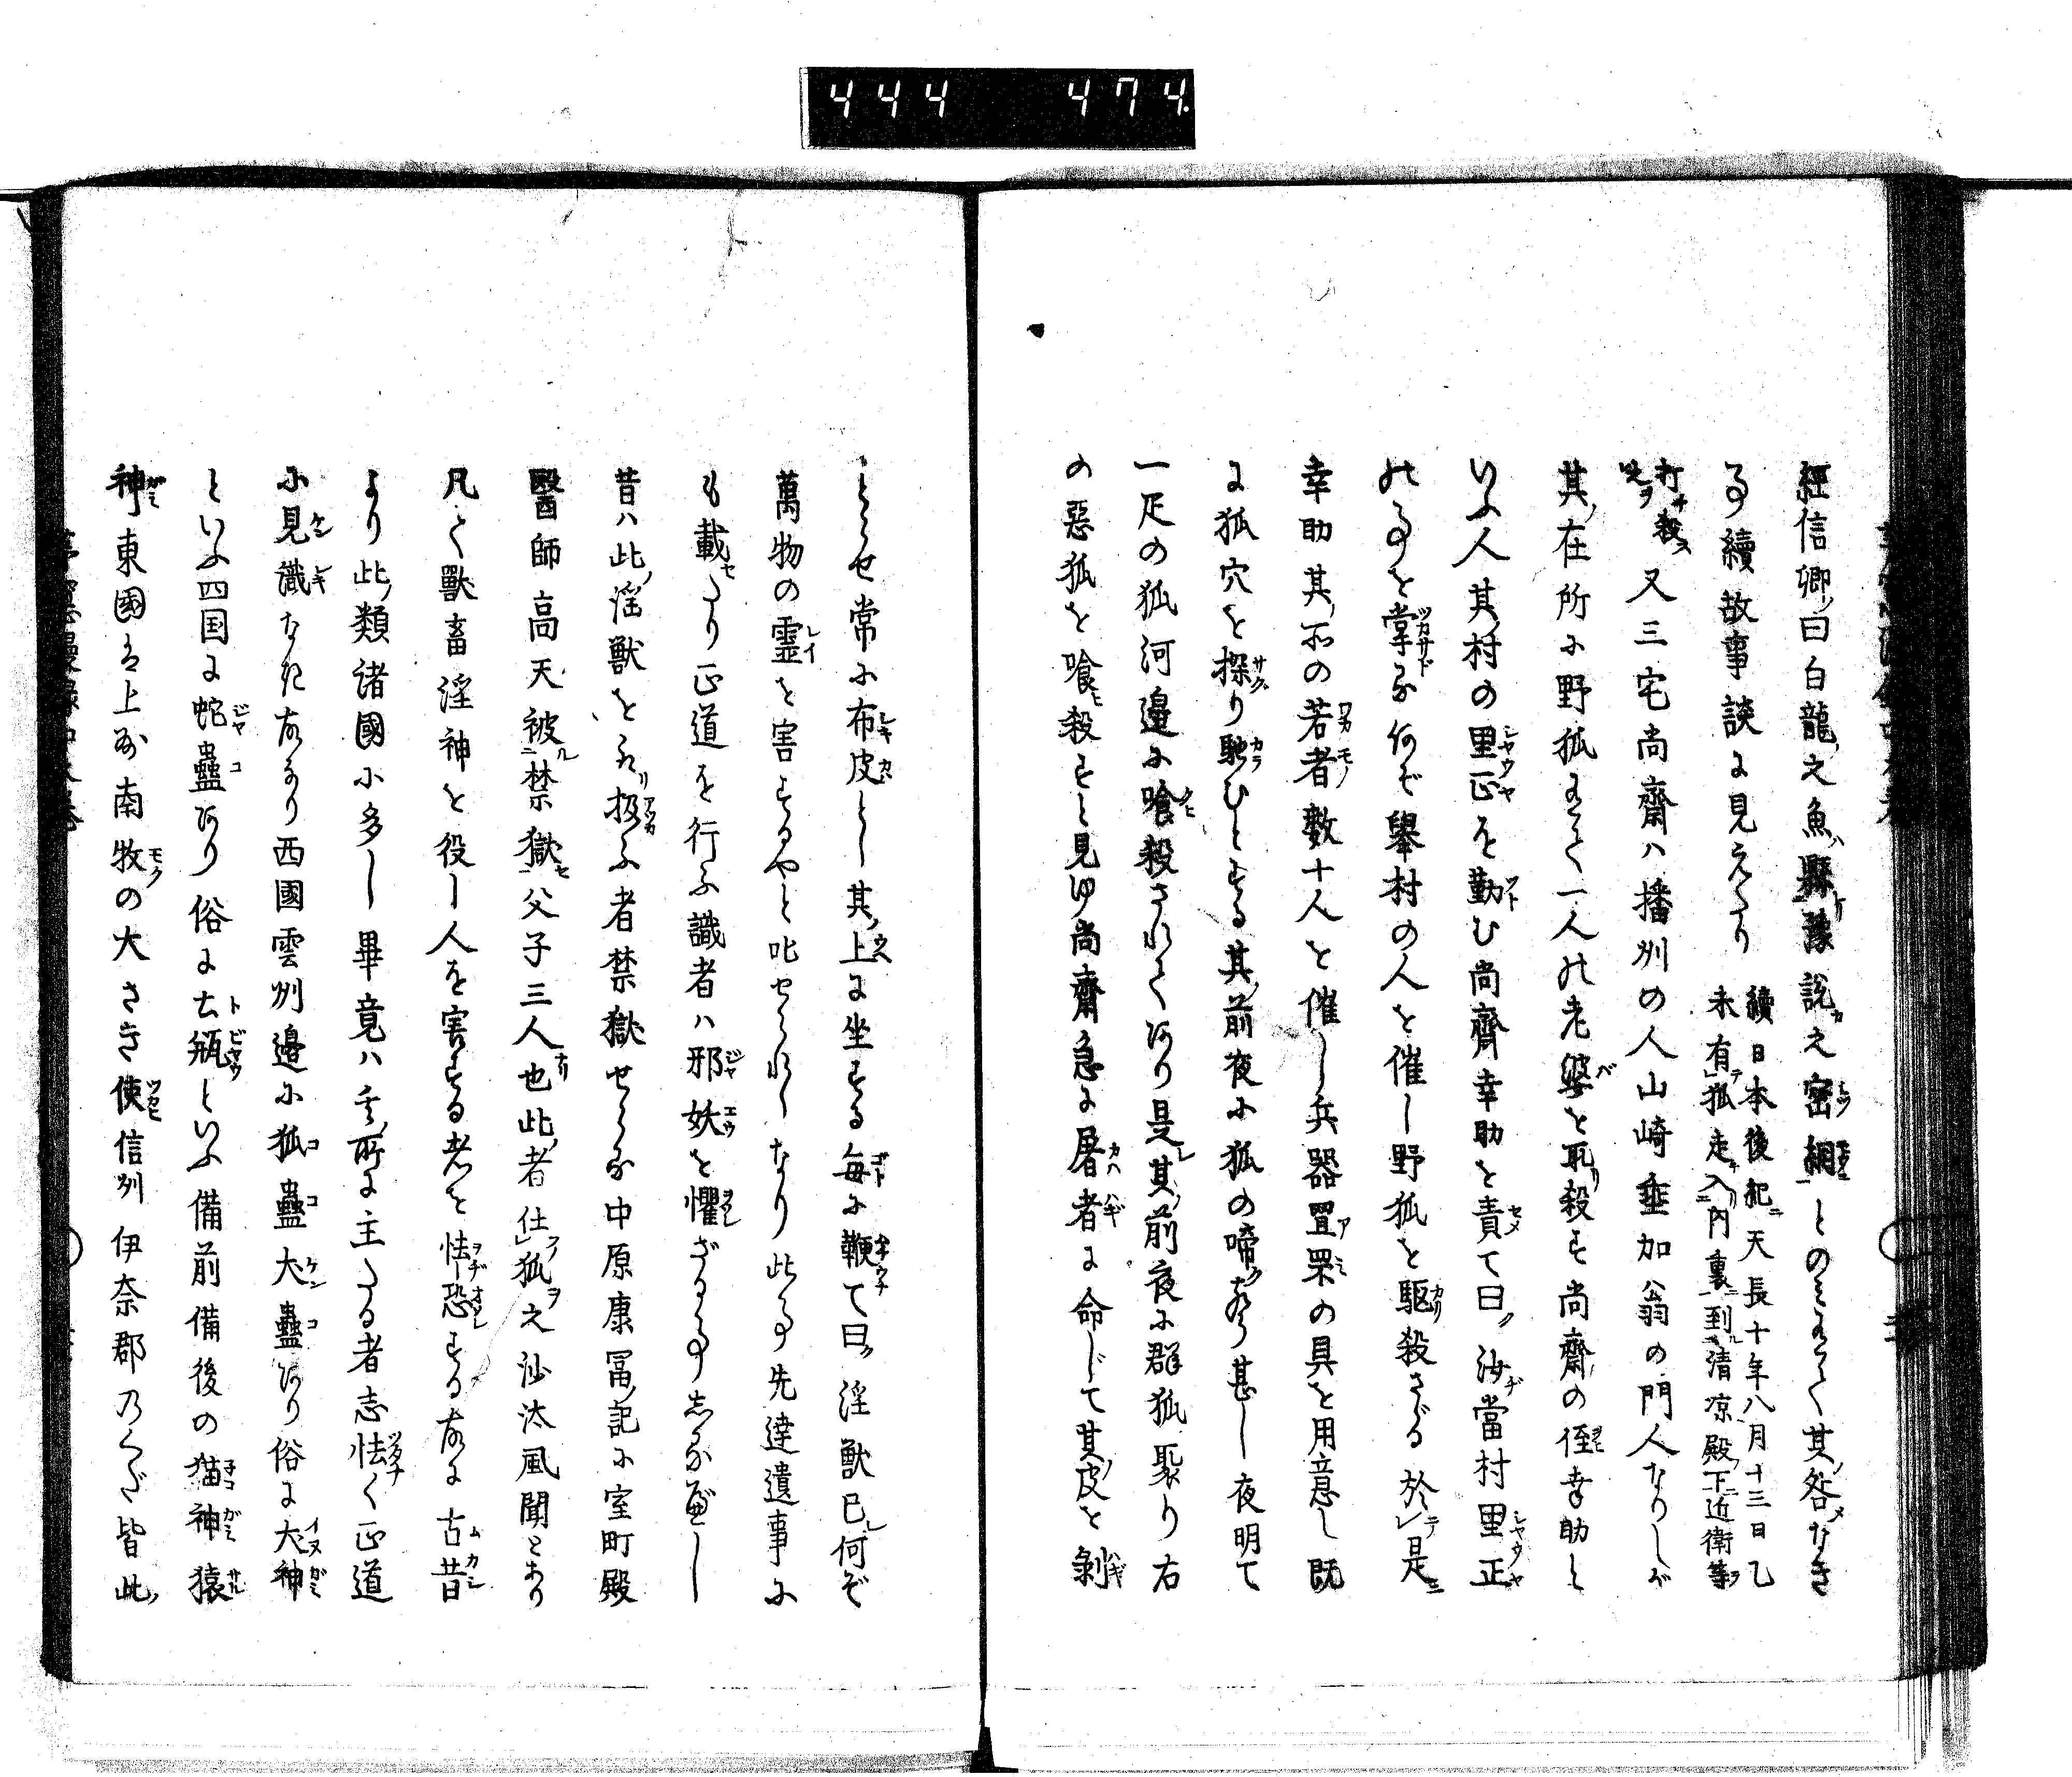 444 474
經信卿ノ曰白龍ノ之魚ハ縣豫說之密網とのミ有て其咎なき
事續故事談に見えたり 續日本後紀ニ天長十年八月十三日乙
未有狐走入內裏到清凉殿ノ下ニ近衛等
打チ殺ス之ヲ 又三宅尚齋ハ播州の人山崎垂加翁の門人なりしが
其ノ在所に野狐有て一人の老婆を取リ殺す尚齋ノの侄幸助と
いふ人其ノ村の里正を勤む尚齋幸助を責て曰ク汝當村ノ里正
の事を掌る何ぞ舉村の人を催し野狐を駆殺さざる於テ是ニ
幸助其ノ所の若者數十人を催し兵器罝罘の具を用意し既
に狐穴を探り馳ひとする其ノ前夜に狐の啼ク聲甚し夜明て
一疋の狐河邊に喰殺されてあり是レ其ノ前夜に群狐聚り右
の惡狐を喰ヒ殺すと見ゆ尚齋急に屠者に命じて其ノ皮を剝
とらせ常に布皮とし其ノ上に坐する每に鞭て曰ク淫獸已レ何ぞ
萬物の霊を害するやと叱せられしなり此事先達遺事に
も載せたり正道を行ふ識者ハ邪妖を懼ざる事しるべし
昔ハ此ノ淫獸を取リ扱ふ者禁獄せらる中原康冨ノ記に室町殿
醫師高天被ル禁獄セ父子三人也此ノ者仕フ狐ヲ之沙汰風聞とあり
凡そ獸畜淫神を役し人を害する者を怯恐する故に古昔
より此ノ類諸國に多し畢竟ハ其ノ所に主たる者志怯く正道
に見識なき故なり西國雲州邊に狐蠱犬蠱あり俗に犬神
といふ四国に蛇蠱あり俗に土瓶といふ備前備後の猫神猿
神東國は上州南牧の大さき使信州伊奈郡乃くだ皆此ノ